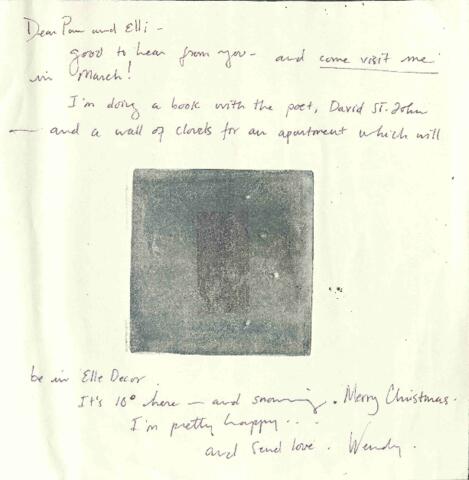 Dear Pam and Elli -
good to hear from you - and come visit me
in March!
I'm doing a book with the poet, David St. John
— and a wall of clouds for an apartment which will
be in Elle Decor.
It's 10° here — and snowing. Merry Christmas.
I'm pretty happy...
and send love. Wendy.